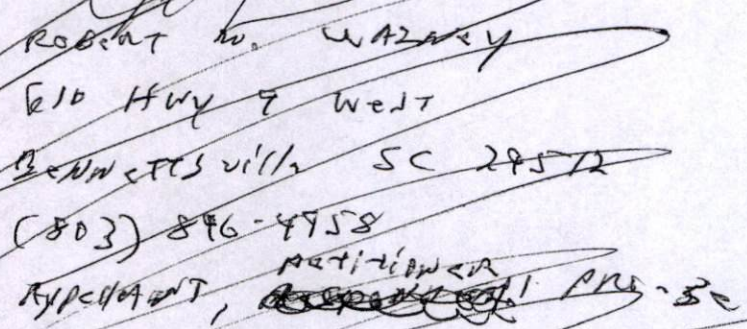 Robert W. WAZNEY
610 Hwy 9 West
Bennettsville SC 29512
(803) 896-4958
Appellant, petitioner Pro-Se